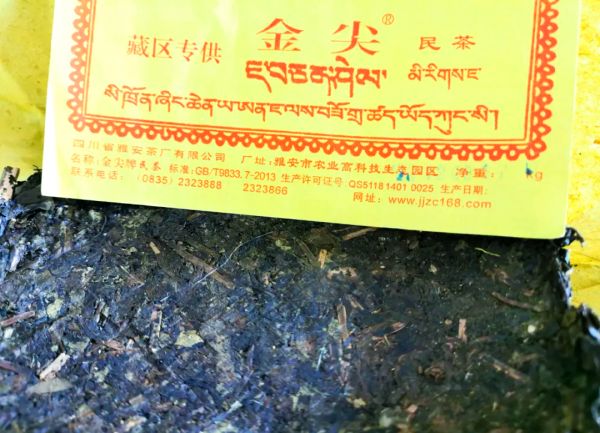 藏区专供 金尖® 民茶
ཇ་བཅག་ཤིམ། མི་རིགས་ཇ
སི་ཁྲོན་ཞིང་ཆེན་ཡ་ཨན་ཇ་ལས་བཟོ་གྲྭ་ཚད་ཡོད་ཀུང་སི།
四川省雅安茶厂有限公司 厂址:雅安市农业高科技生态园区 净重: kg
名称:金尖牌民茶 标准:GB/T9833.7-2013 生产许可证号:QS5118 1401 0025 生产日期:
联系电话:(0835)2323888 2323866 网址:www.jjzc168.com